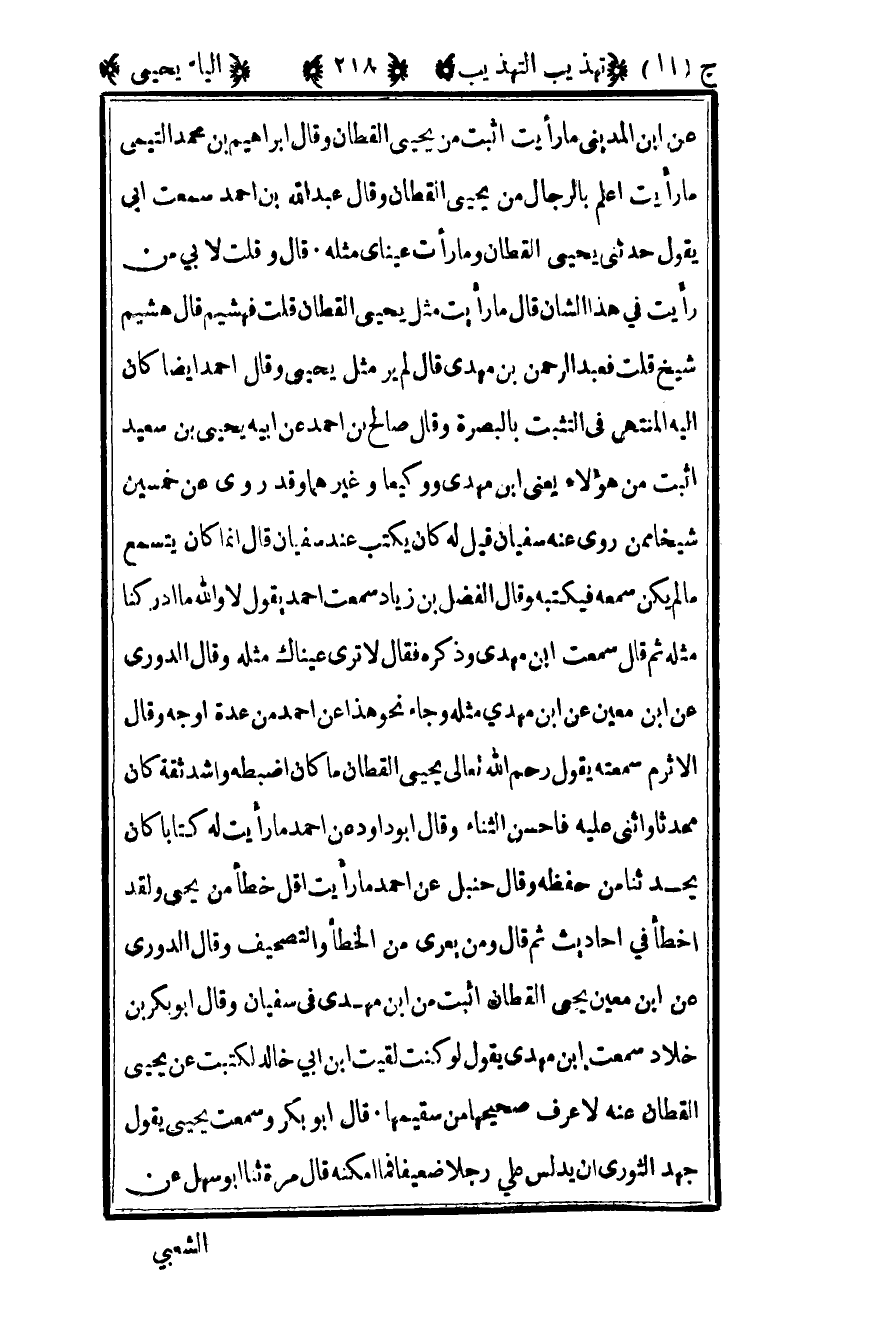 ج (١١) ﴿تهذيب التهذيب﴾ ﴿٢١٨﴾ ﴿الياء يحيى﴾
عن ابن المديني مارأيت اثبت من يحيى القطان وقال ابراهيم بن محمد التيمى
مارأيت اعلم بالرجال من يحيى القطان وقال عبدالله بن احمد سمعت ابى
يقول حدثنى يحيى القطان ومارأت عيناى مثله · قال و قلت لا بي من
رأيت في هذا الشان قال مارأيت مثل يحيى القطان قلت فهشيم قال هشيم
شيخ قلت فعبد الرحمن بن مهدى قال لم ير مثل يحيى وقال احمد ايضا كان
اليه المنتهى فى التثبت بالبصرة وقال صالح بن احمد عن ابيه يحيى بن سعيد
اثبت من هؤلاء يعنى ابن مهدى ووكيعا و غيرهما وقد روى عن خمسين
شيخا ممن روى عنه سفيان قيل له كان يكتب عند سفيان قال انما كان يتسمع
مالم يكن سمعه فيكتبه وقال الفضل بن زياد سمعت احمد يقول لا والله ما ادركنا
مثله ثم قال سمعت ابن مهدى وذكره فقال لا ترى عيناك مثله وقال الدورى
عن ابن معين عن ابن مهدي مثله وجاء نحو هذا عن احمد من عدة اوجه وقال
الاثرم سمعته يقول رحم الله تعالى يحيى القطان ما كان اضبطه واشد ثقة كان
محدثا واثنى عليه فاحسن الثناء وقال ابوداود عن احمد مارأيت له كتابا كان
يحـد ثنا من حفظه وقال حنبل عن احمد مارأيت اقل خطأ من يحيى ولقد
اخطأ في احاديث ثم قال ومن يعرى من الخطأ والتصحيف وقال الدورى
عن ابن معين يحيى القطان اثبت من ابن مهـدى فى سفيان وقال ابو بكر بن
خلاد سمعت ابن مهدى يقول لو كنت لقيت ابن ابي خالد لكتبت عن يحيى
القطان عنه لا عرف صحيحها من سقيمها · قال ابو بكر وسمعت يحيى يقول
جهد الثورى ان يدلس علي رجلا ضعيفا فما امكنه قال مرة ثنا ابو سهل عن
الشعبي